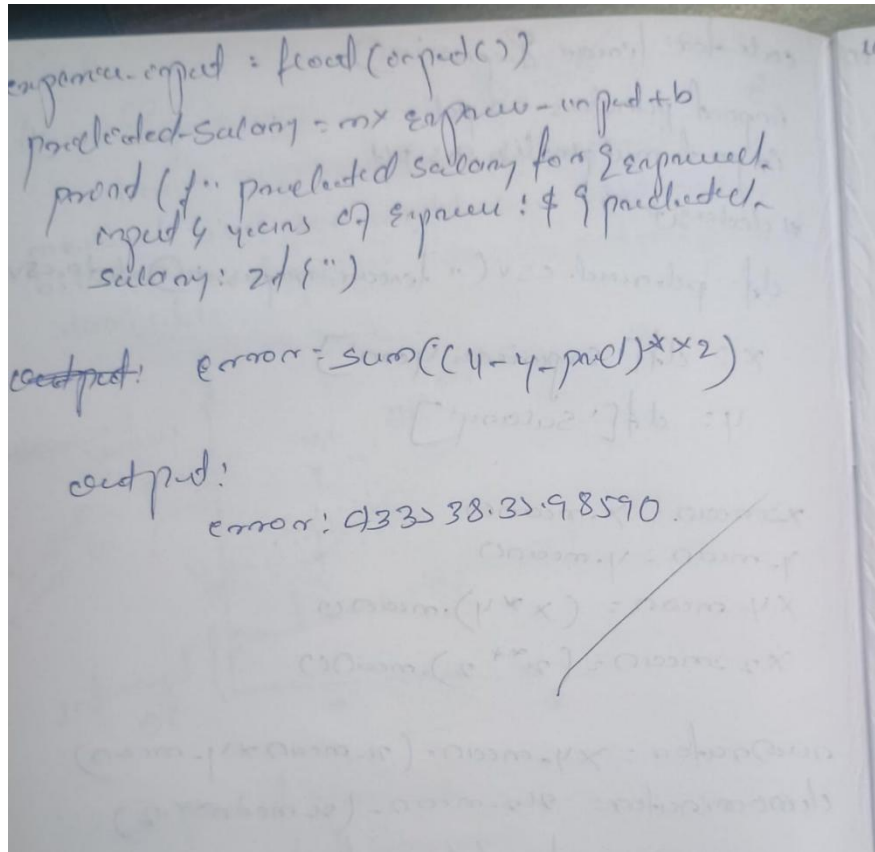 experience_input = float(input())
predicted_salary = m* experience_input + b
print(f" predicted salary for {experienced_
input} years of experience: $ {predicted_
salary: 2f}")
output: error = sum((y-y_pred)**2)
output:
error: